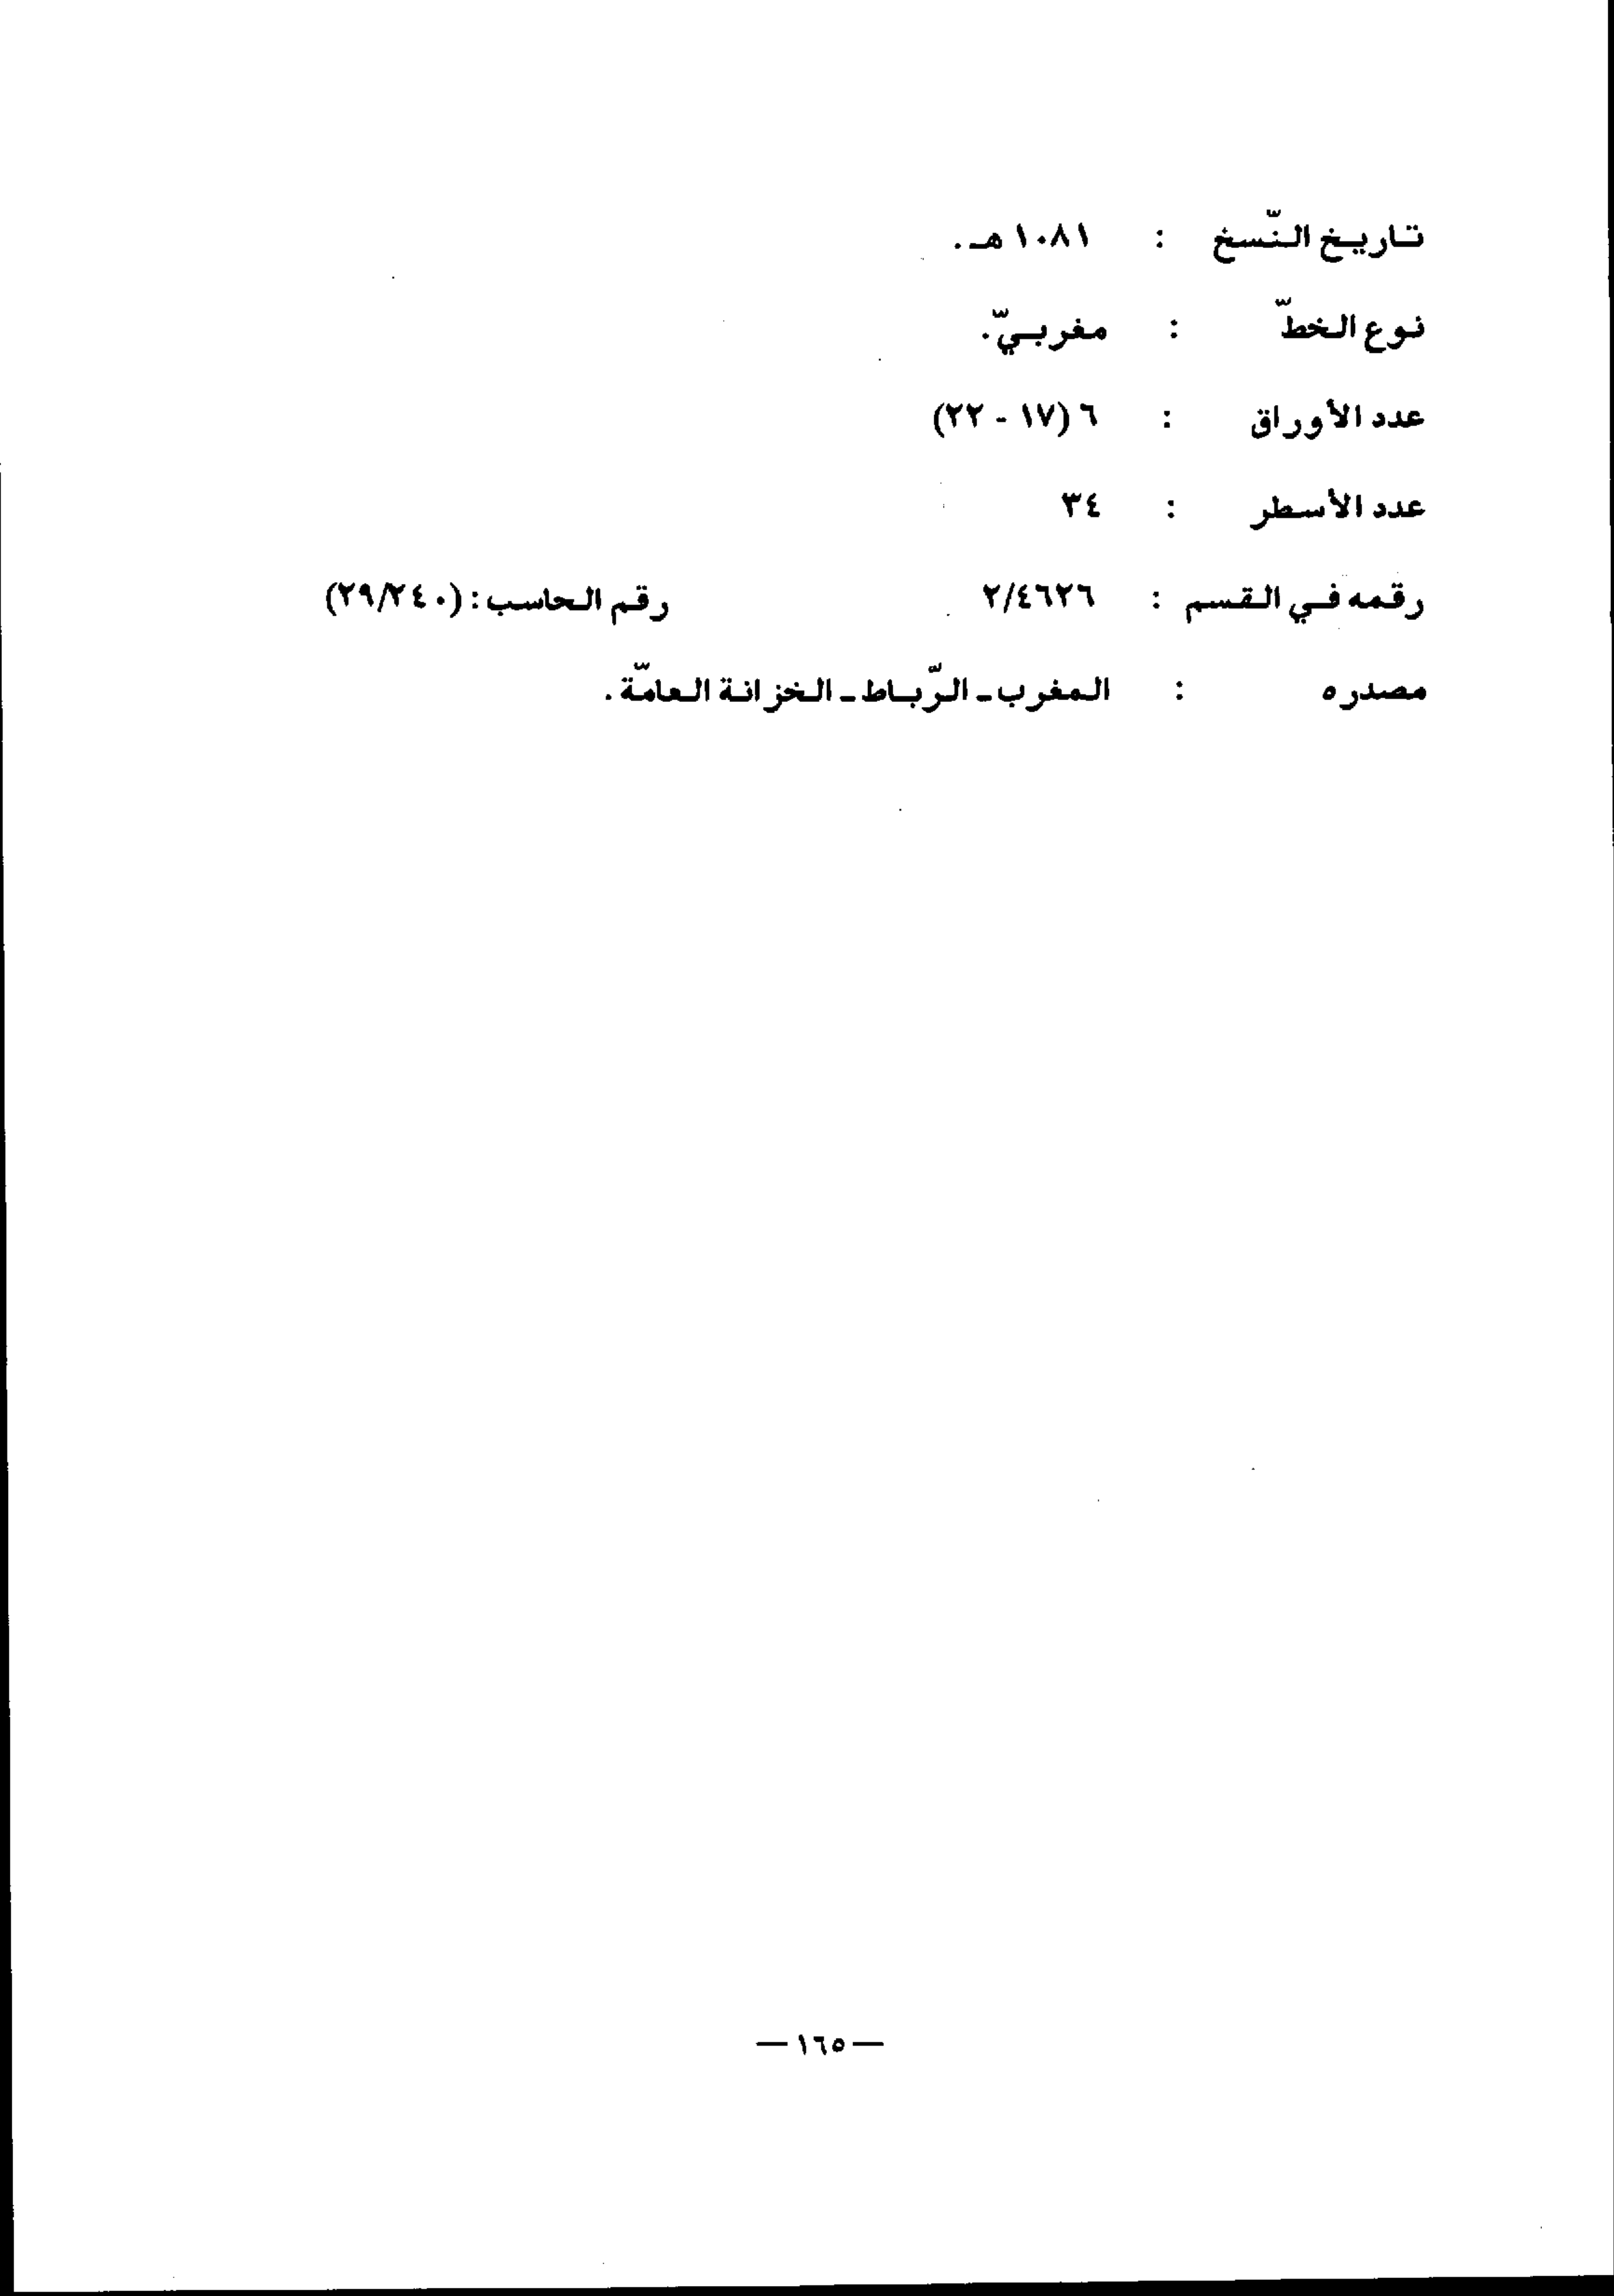 تاريخ النّسخ : ١٠٨١ هـ.
نوع الخطّ : مغربيّ.
عدد الأوراق : ٦ (١٧ - ٢٢)
عدد الأسطر : ٣٤
رقمه في القسم : ٢/٤٦٢٦ رقم الحاسب : (٢٩/٢٤٠)
مصدره : المغرب - الرّباط - الخزانة العامّة.
— ١٦٥ —